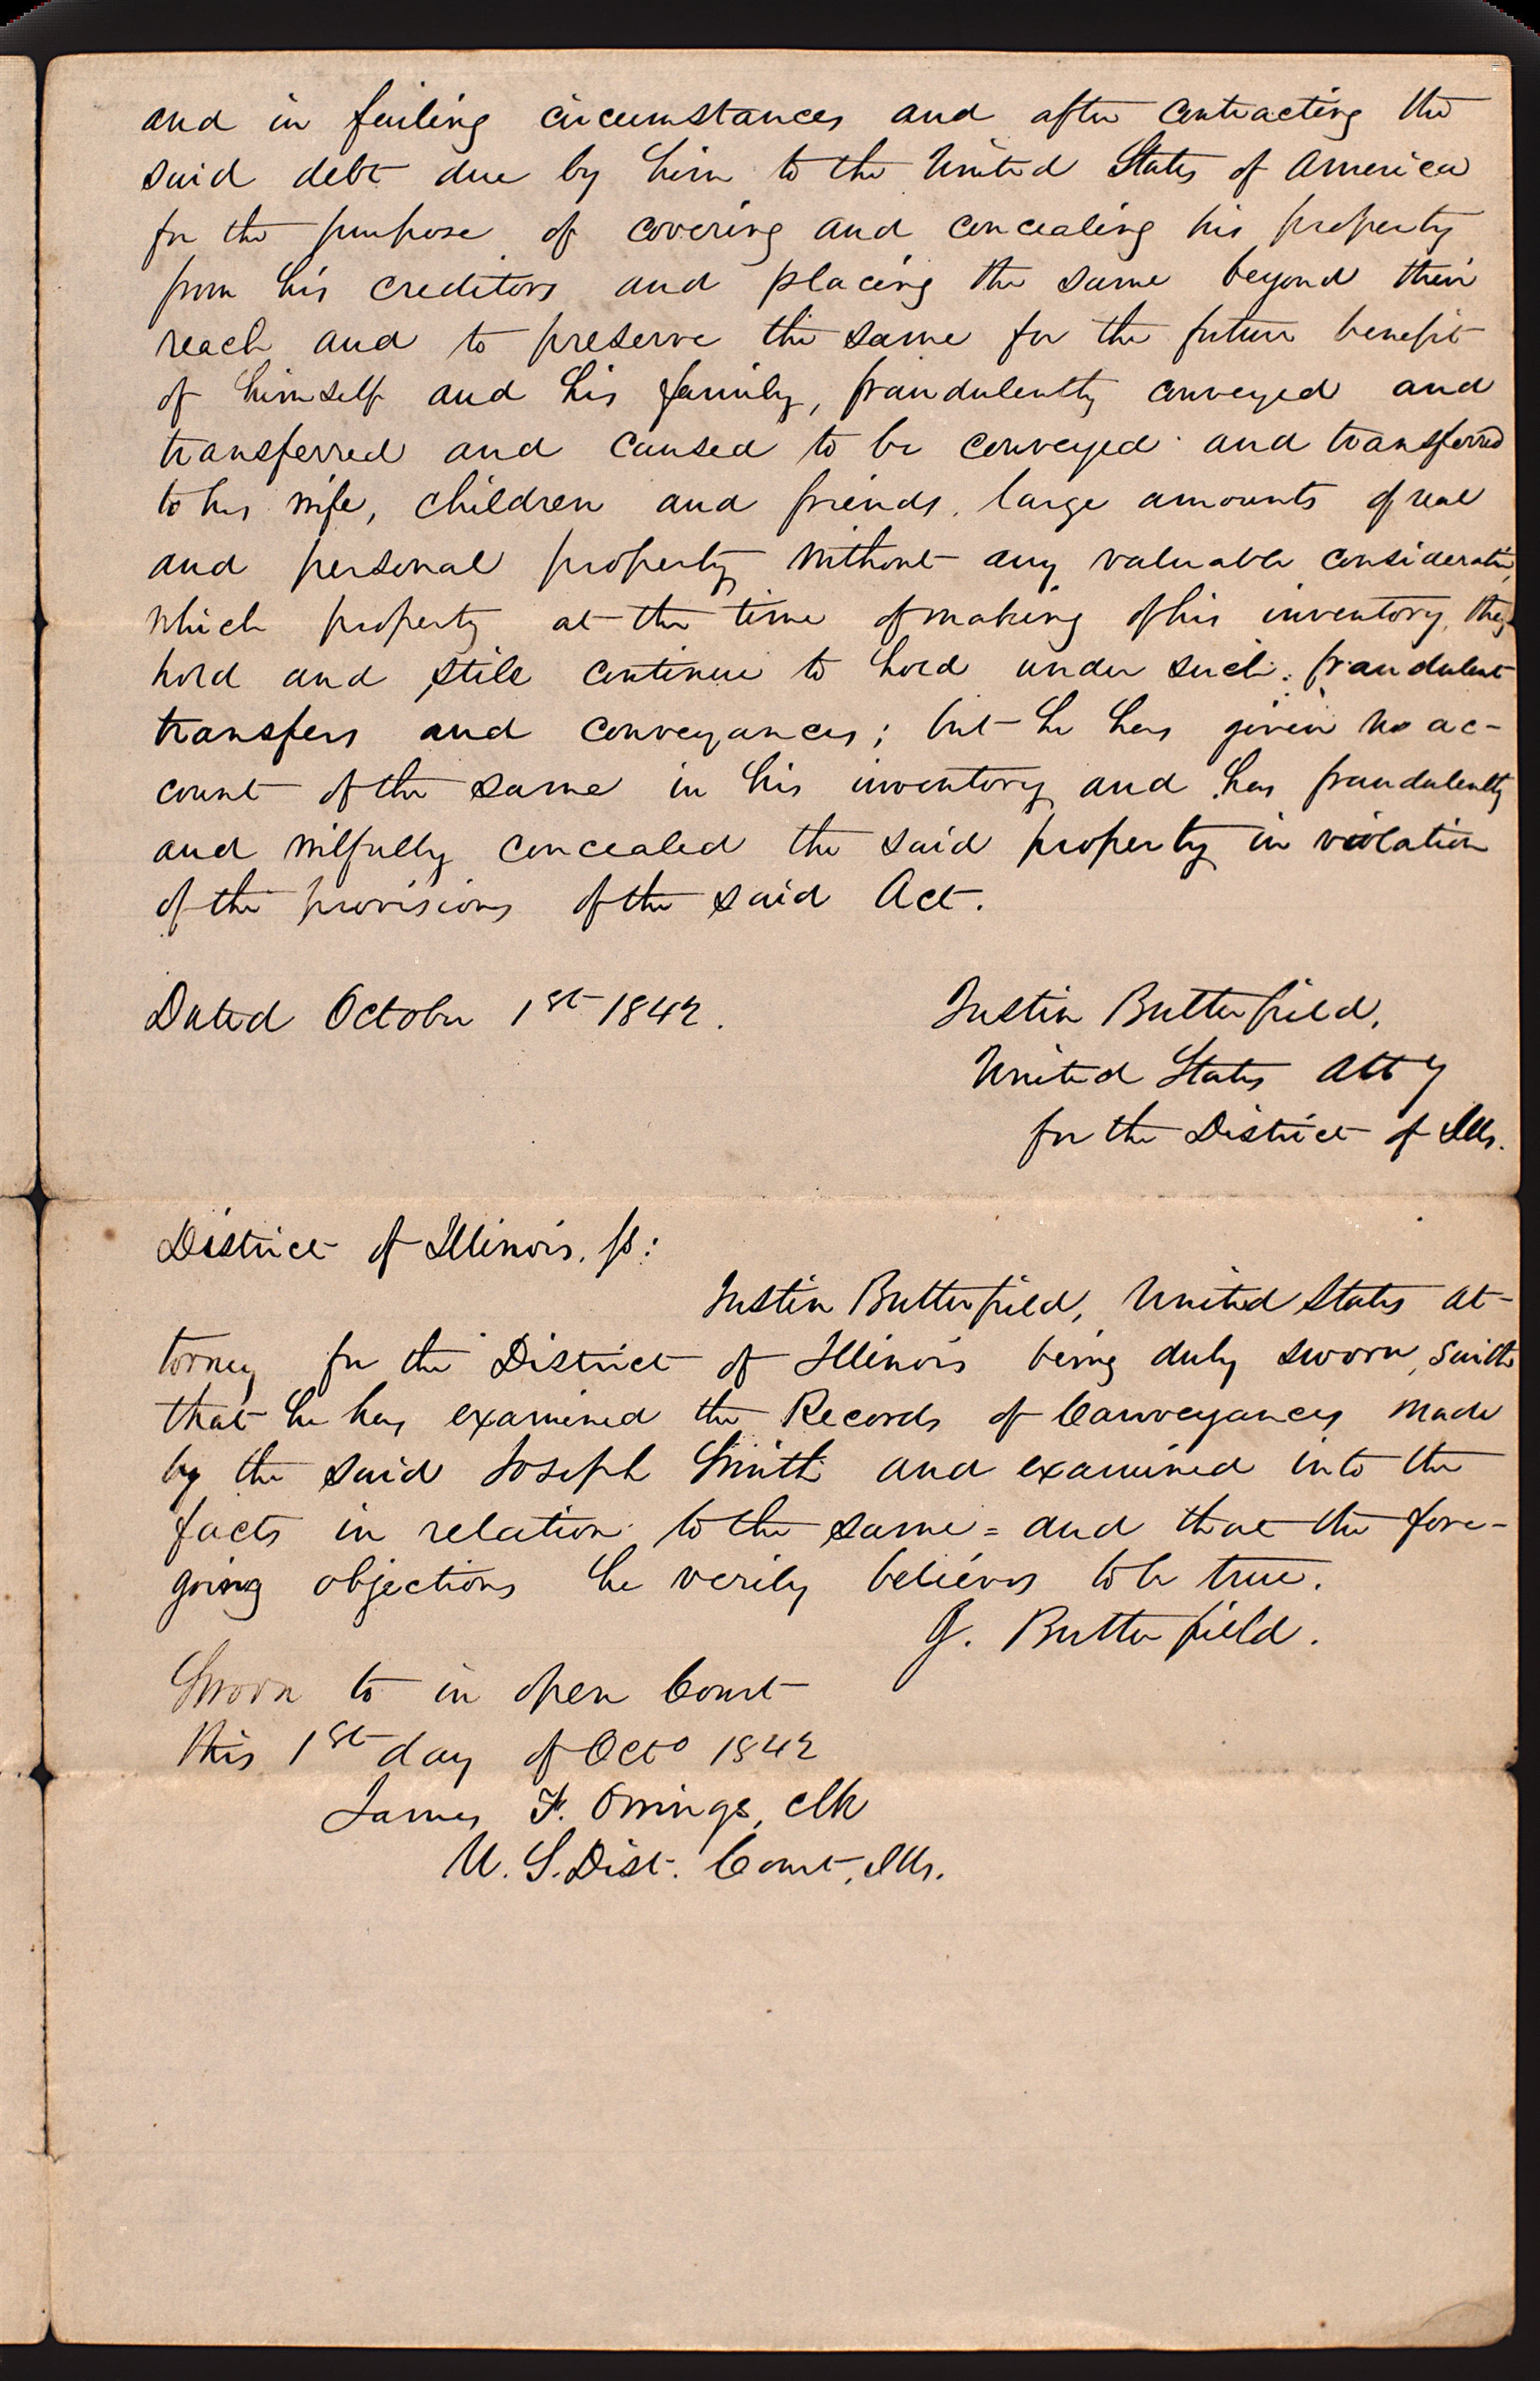 and in failing circumstances and after contracting the
said debt due by him to the United States of America
for the purpose of covering and concealing his property
from his creditors and placing the same beyond their
reach and to preserve the same for the future benefit
of himself and his family, fraudulently conveyed and
transferred and caused to be conveyed and transferred
to his wife, children and friends, large amounts of real
and personal property without any valuable consideration,
which property at the time of making of his inventory, they
hold and still continue to hold under such fraudulent
transfers and conveyances; but he has given no ac-
count of the same in his inventory and has fraudulently
and wilfully concealed the said property in violation
of the provisions of the said Act.
Dated October 1st 1842.
Justin Butterfield,
United States Atty
for the District of Ills.
District of Illinois, ss:
Justin Butterfield, United States at-
torney for the District of Illinois being duly sworn, saith
that he has examined the Records of Conveyances made
by the said Joseph Smith and examined into the
facts in relation to the same = and that the fore-
going objections he verily believes to be true.
J. Butterfield.
Sworn to in open Court
this 1st day of Octo 1842
James F. Owings, clk
U. S. Dist. Court, Ills.